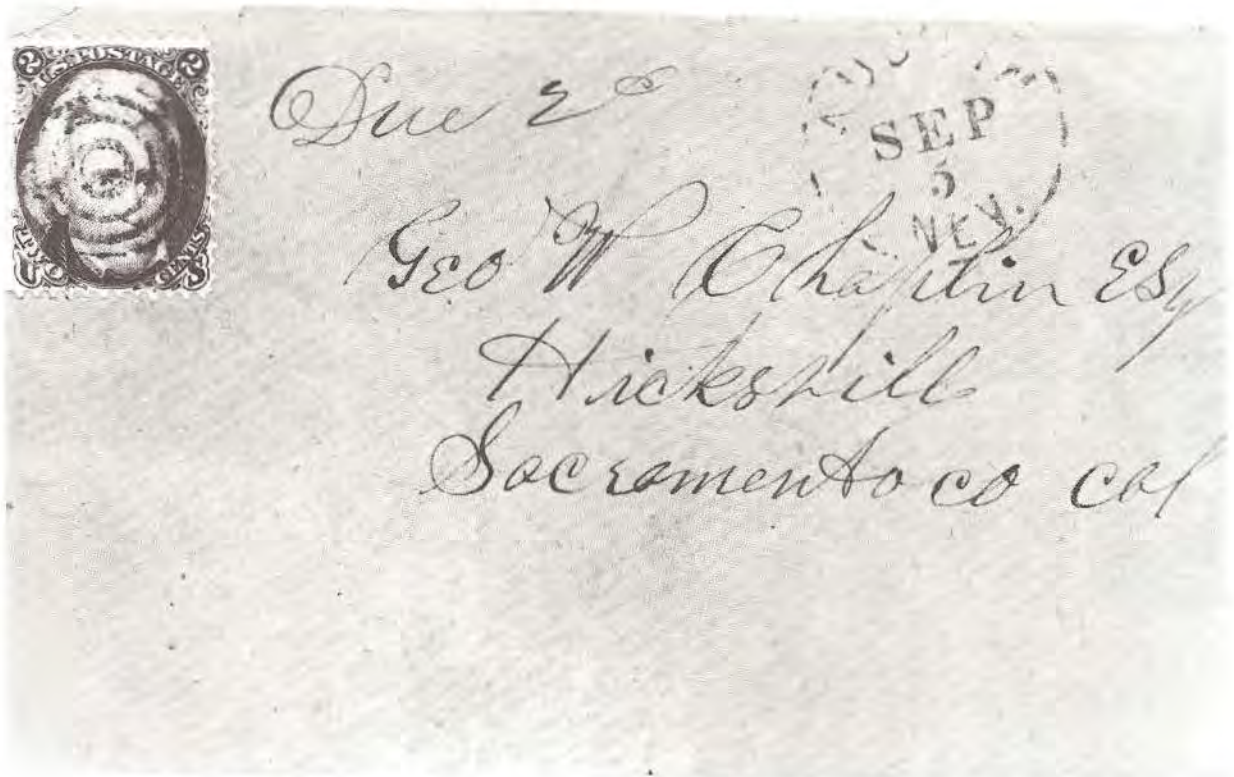 2 U.S. POSTAGE 2
U CENTS S
Due 2c
SEP
5
NEV.
Geo W Chaplin Esq
Hicksvill
Sacramento co cal